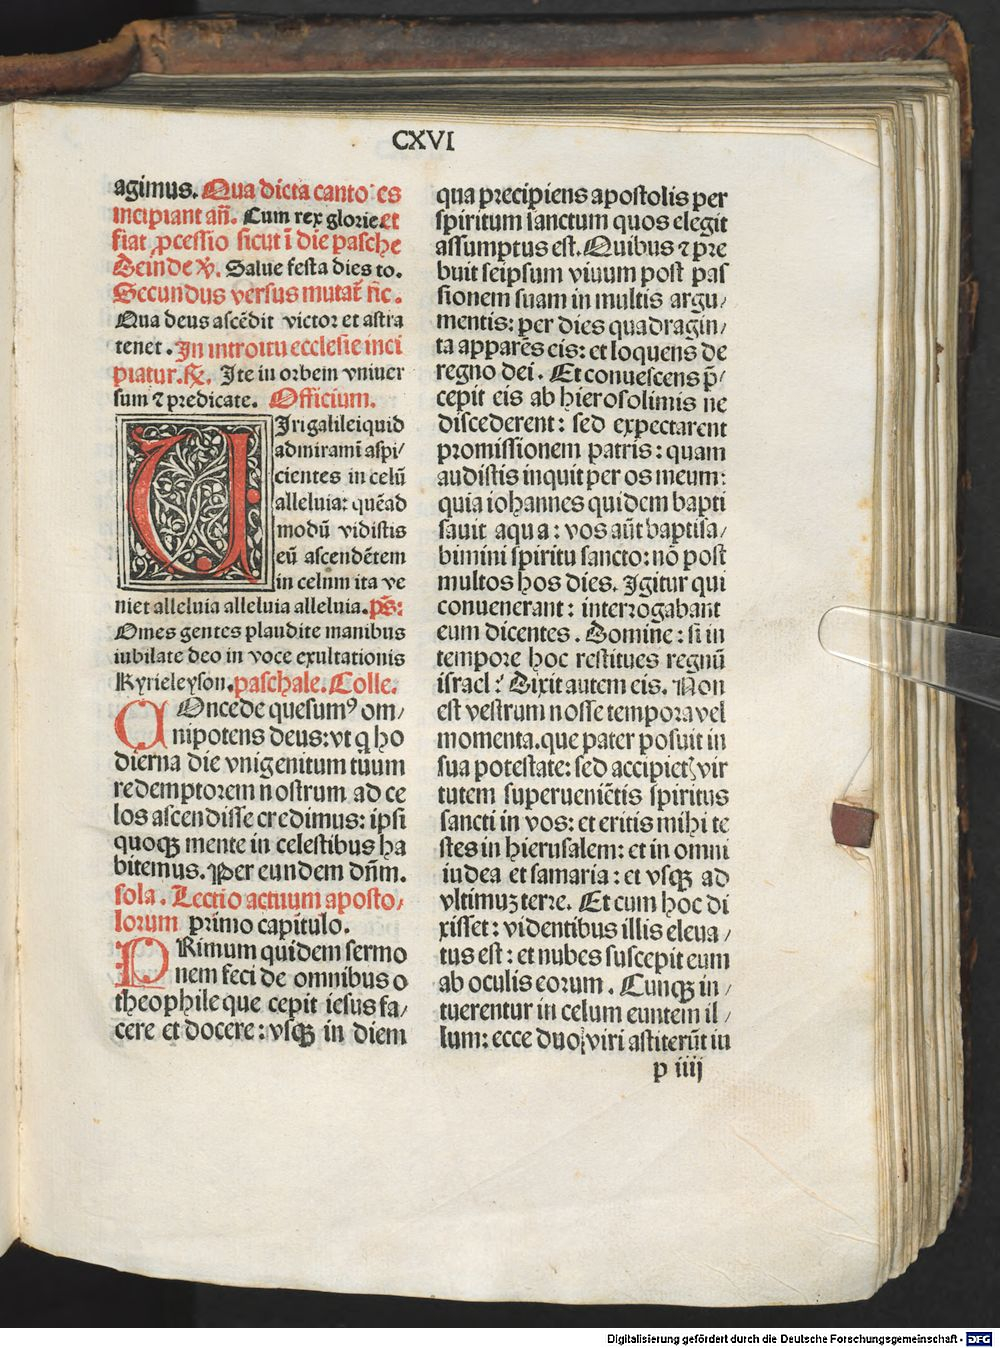 CXVI
agimus. Qua dicta canto⁊es
incipiant añ. Cum rex glorie. et
fiat ꝓcessio sicut ĩ die pasche
Deinde ꝟ. Salue festa dies to.
Secundus versus mutat̃ sic.
Qua deus ascẽdit victor et astra
tenet. In introitu ecclesie inci
piatur. ℟. Ite in orbem vniuer
sum ⁊ predicate. Officium.
UIri galilei quid
admiramĩ aspi/
cientes in celũ
alleluia: quẽad
modũ vidistis
eũ ascendẽtem
in celum ita ve
niet alleluia alleluia alleluia. ps̃:
Omes gentes plaudite manibus
iubilate deo in voce exultationis
Kyrieleyson. paschale. Colle.
COncede quesumꝰ om/
nipotens deus: vt q̃ ho
dierna die vnigenitum tuum
redemptorem nostrum ad ce
los ascendisse credimus: ipsi
quoqꝫ mente in celestibus ha
bitemus. Per eundem dñm.
sola. Lectio actuum aposto/
lorum primo capitulo.
PRimum quidem sermo
nem feci de omnibus o
theophile que cepit iesus fa/
cere et docere: vsqꝫ in diem
qua precipiens apostolis per
spiritum sanctum quos elegit
assumptus est. Quibus ⁊ pre
buit seipsum viuum post pas
sionem suam in multis argu/
mentis: per dies quadragin/
ta apparẽs eis: et loquens de
regno dei. Et conuescens p̃/
cepit eis ab hierosolimis ne
discederent: sed expectarent
promissionem patris: quam
audistis inquit per os meum:
quia iohannes quidem bapti
sauit aqua: vos aũt baptisa/
bimini spiritu sancto: nõ post
multos hos dies. Igitur qui
conuenerant: interrogabant
eum dicentes. Domine: si in
tempore hoc restitues regnũ
israel? Dixit autem eis. Non
est vestrum nosse tempora vel
momenta. que pater posuit in
sua potestate: sed accipietꝭ vir
tutem superueniẽtis spiritus
sancti in vos: et eritis mihi te
stes in hierusalem: et in omni
iudea et samaria: et vsqꝫ ad
vltimuꝫ terre. Et cum hoc di
xisset: videntibus illis eleua/
tus est: et nubes suscepit eum
ab oculis eorum. Cunqꝫ in/
tuerentur in celum euntem il/
lum: ecce duo viri astiterũt iu
p iiij
Digitalisierung gefördert durch die Deutsche Forschungsgemeinschaft - DFG